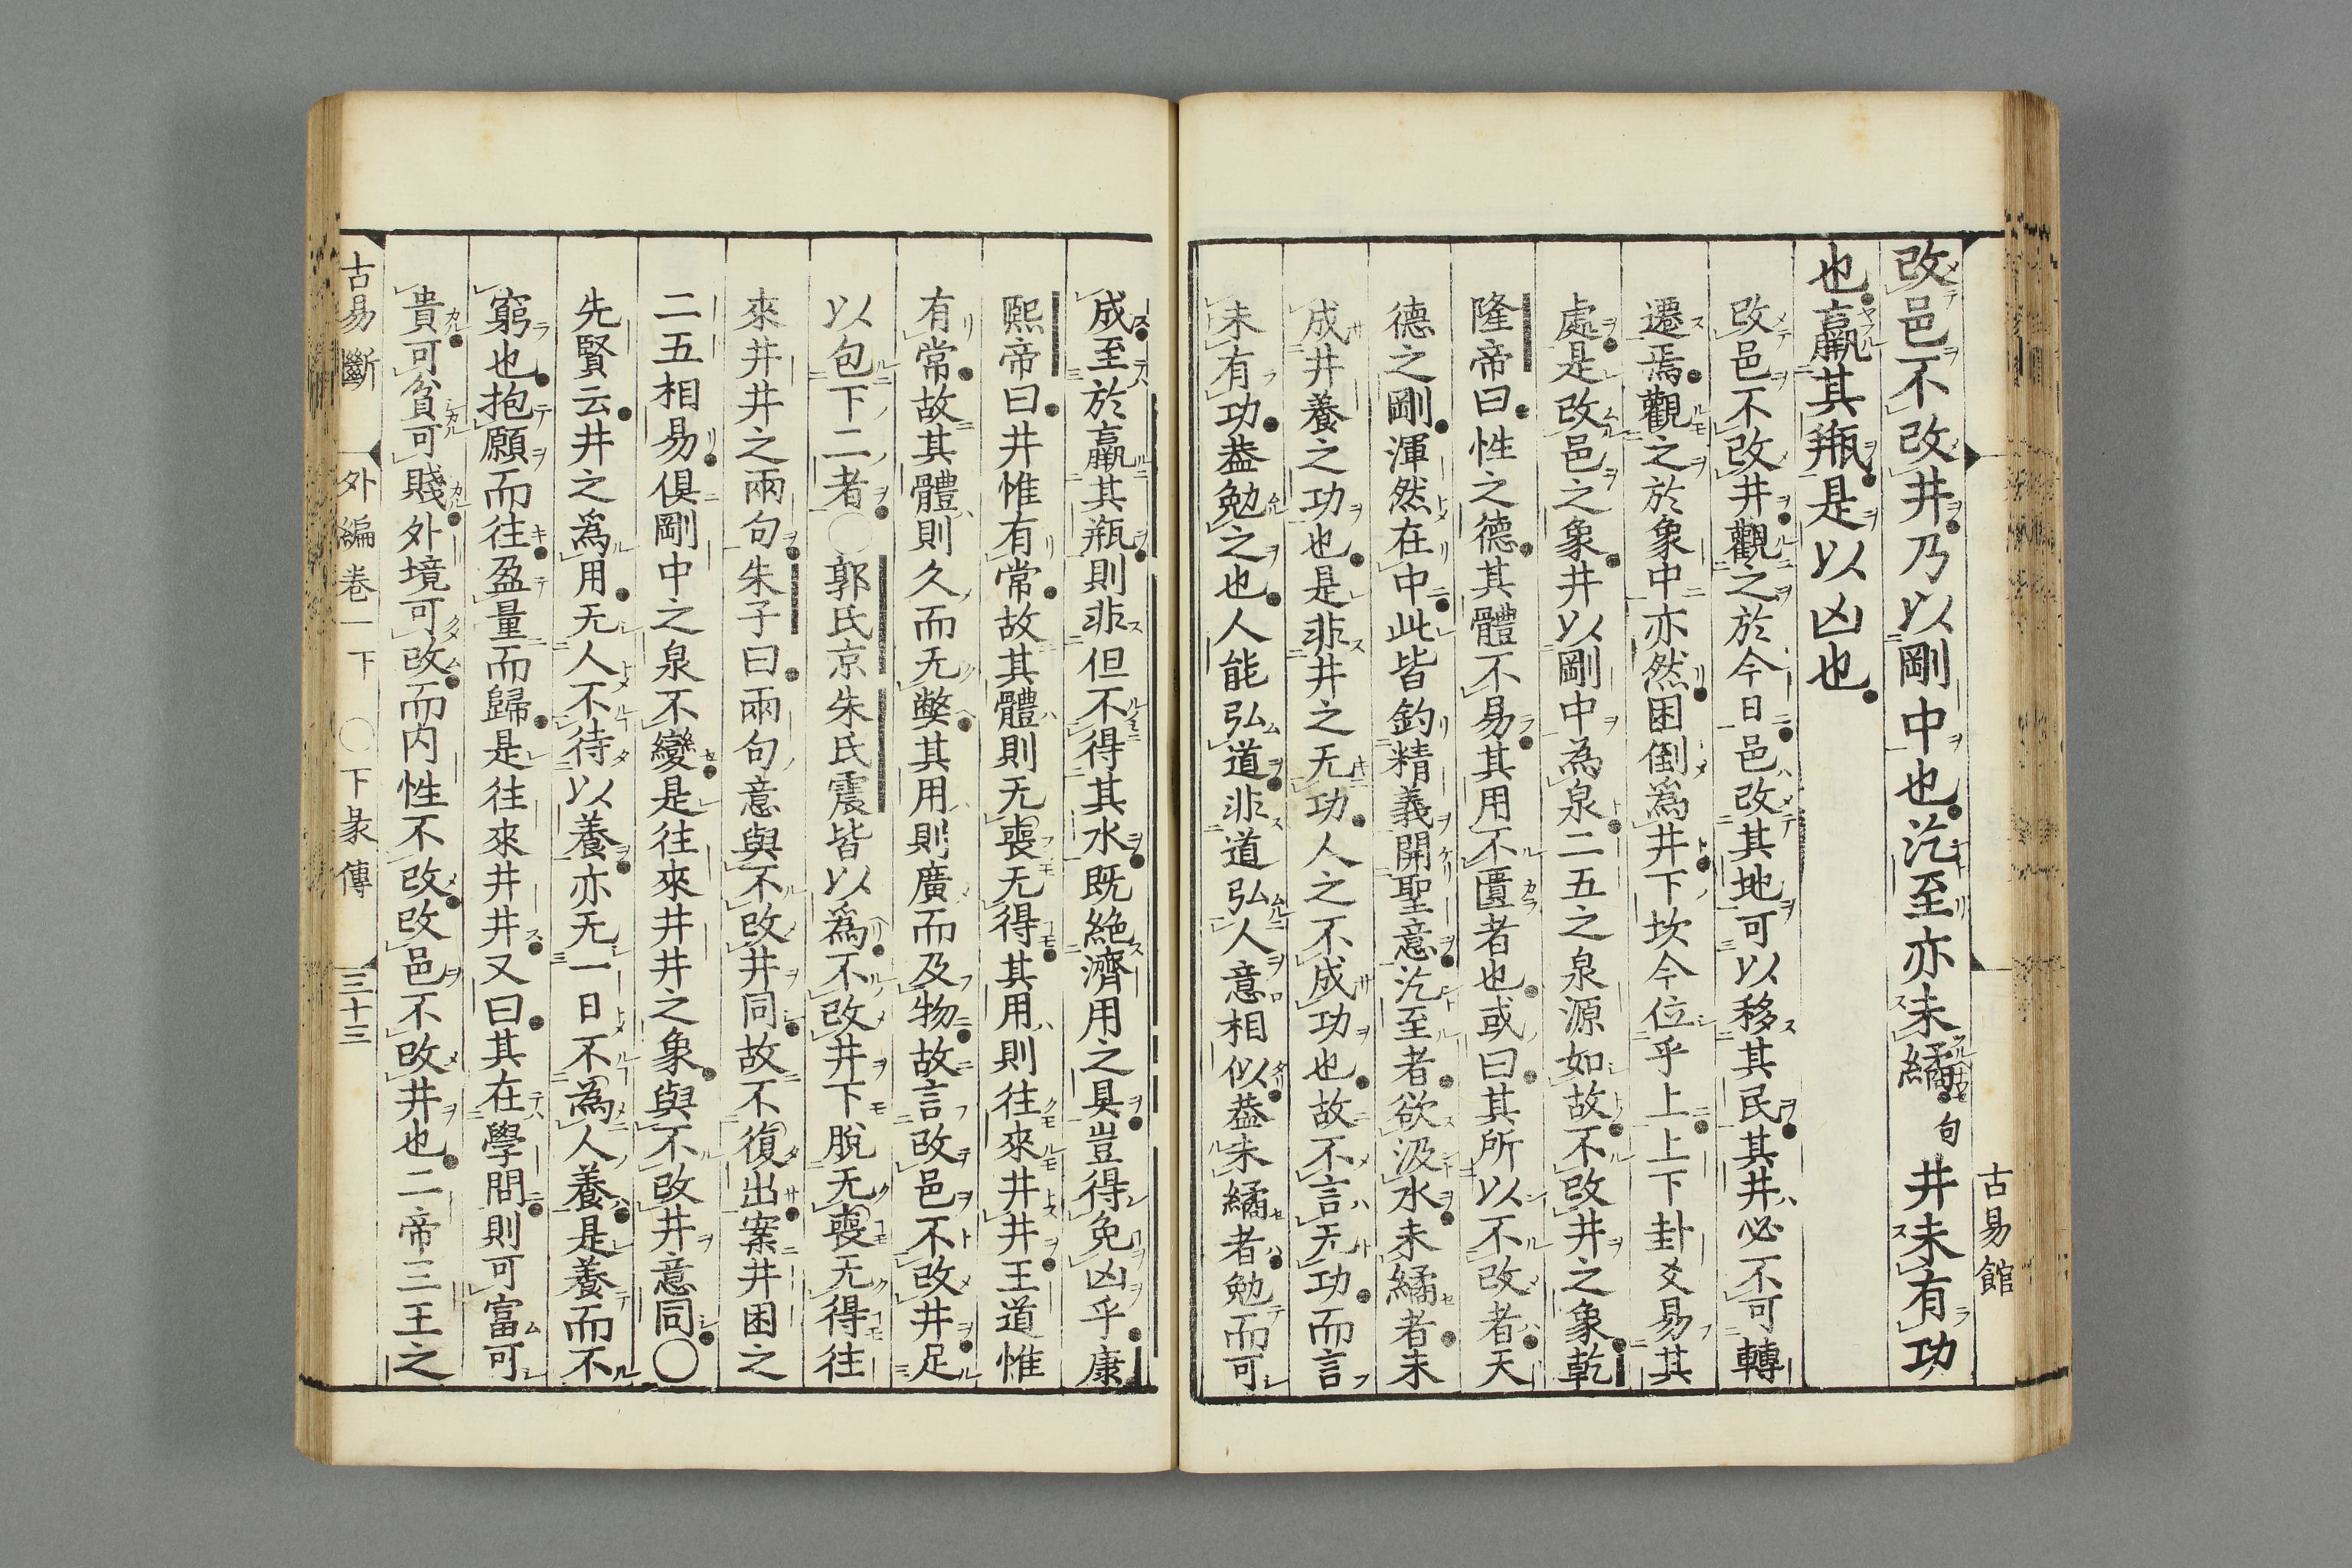 改邑不改井乃以剛中也汔至亦未繘句井未有功
也羸其瓶是以凶也
改邑不改井觀之於今日邑改其地可以移其民其井必不可轉
遷焉觀之於象中亦然困倒爲井下坎今位乎上上下卦爻易其
處是改邑之象井以剛中為泉二五之泉源如故不改井之象乾
隆帝曰性之德其體不易其用不匱者也或曰其所以不改者天
德之剛渾然在中此皆釣精義開聖意汔至者欲汲水未繘者未
成井養之功也是非井之无功人之不成功也故不言无功而言
未有功葢勉之也人能弘道非道弘人意相似葢未繘者勉而可
古易館
成至於羸其瓶則非但不得其水既絶濟用之具豈得免凶乎康
熙帝曰井惟有常故其體則无喪无得其用則往來井井王道惟
有常故其體則久而无弊其用則廣而及物故言改邑不改井足
以包下二者○郭氏京朱氏震皆以爲不改井下脫无喪无得往
來井井之兩句朱子曰兩句意與不改井同故不復出案井困之
二五相易俱剛中之泉不變是往來井井之象與不改井意同○
先賢云井之爲用无人不待以養亦无一日不為人養是養而不
窮也抱願而往盈量而歸是往來井井又曰其在學問則可富可
貴可貧可賤外境可改而内性不改改邑不改井也二帝三王之
古易斷　外編卷一下　○下彖傳　三十三